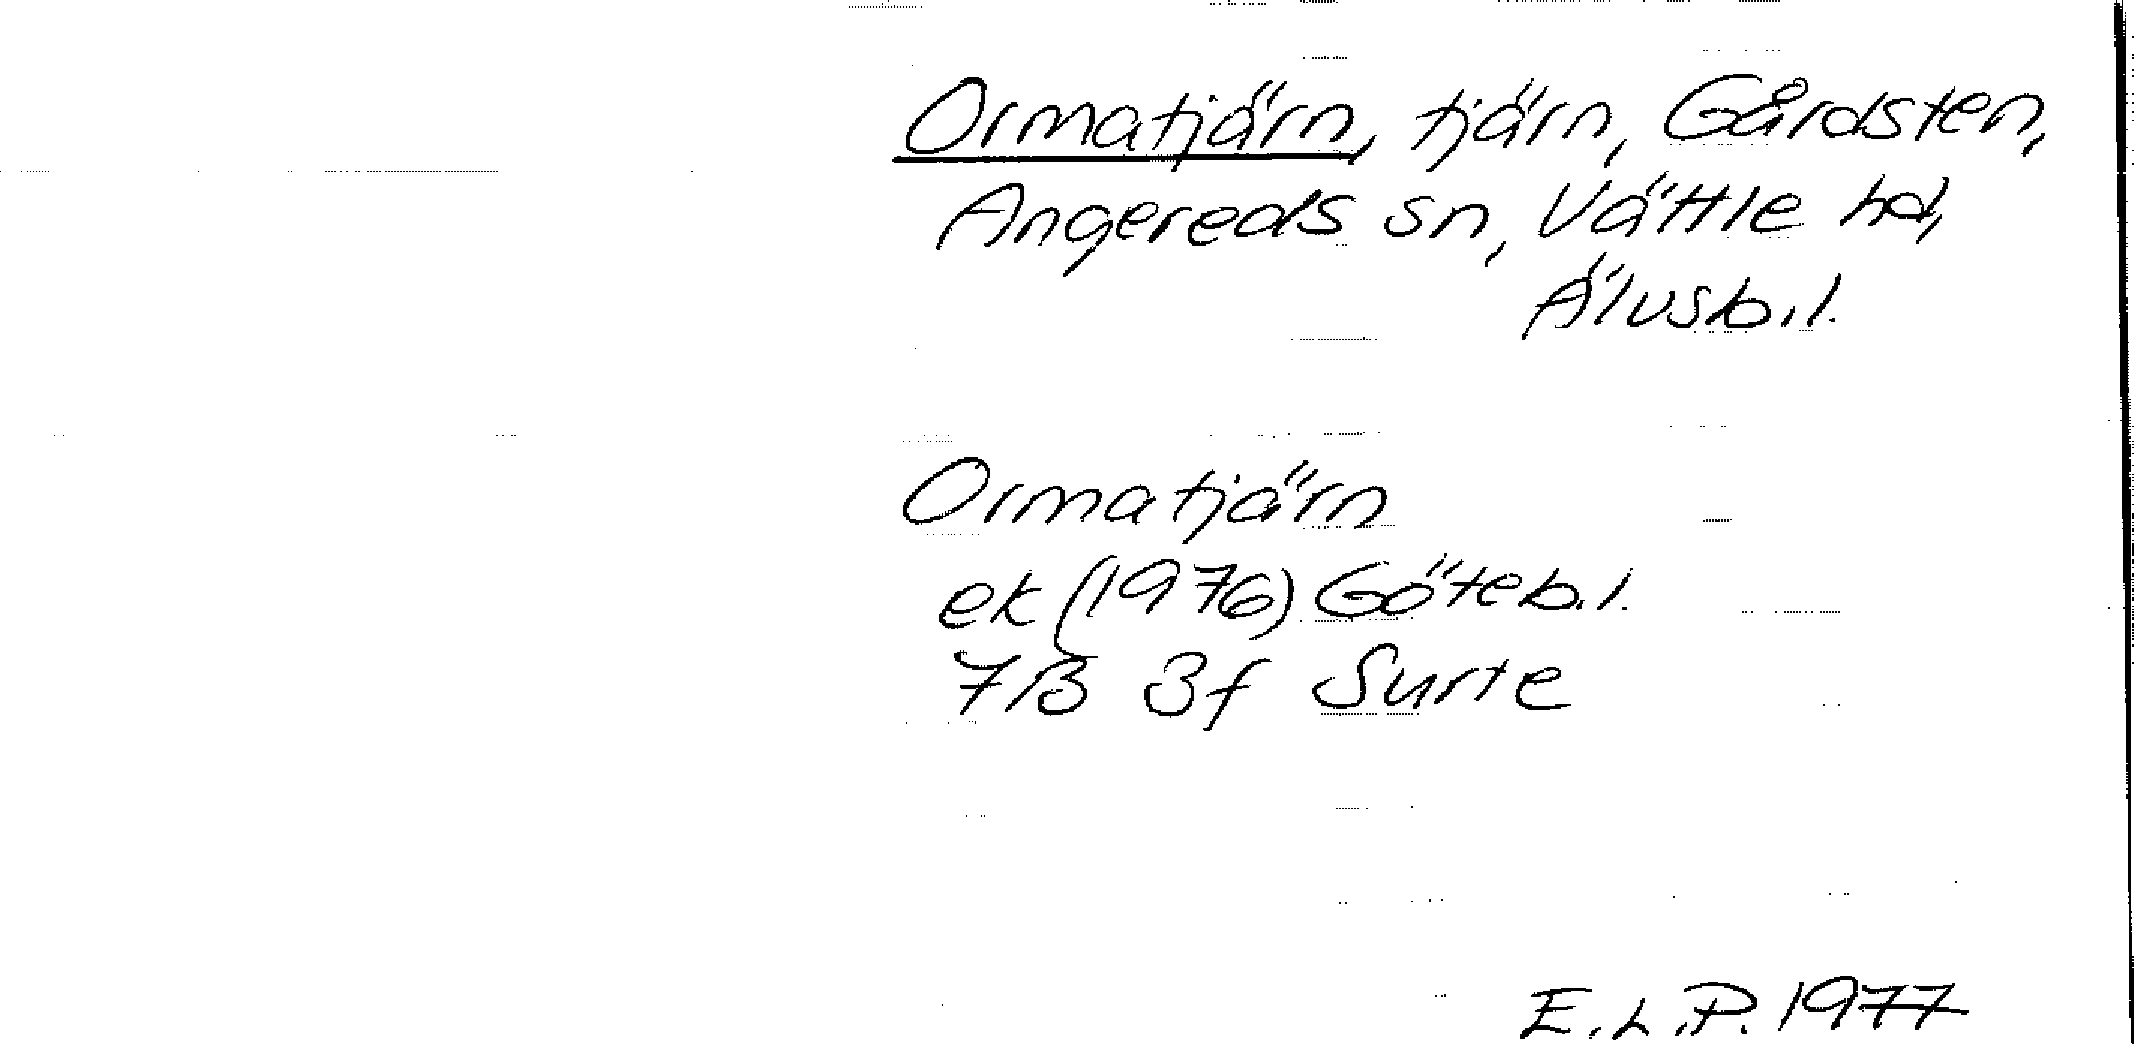 Ormatjärn, tjärn, Gårdsten,
Angereds sn, Vättle hd,
Älvsb. l.
Ormatjärn
ek (1976) Göteb. l.
7B 3f Surte
E. L. P. 1977